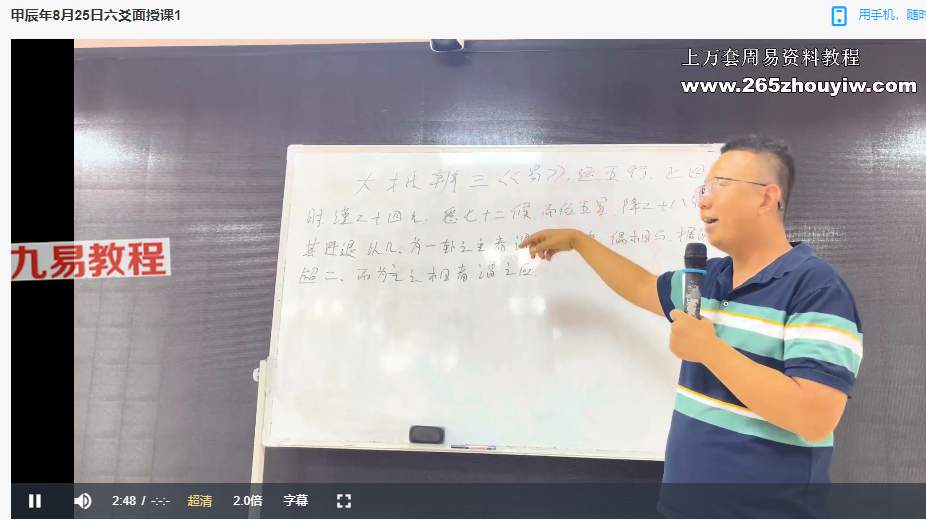 甲辰年8月25日六爻面授课1
用手机，随时
上万套周易资料教程
www.265zhouyiw.com
大抵辩三《易》，运五行，正四
时，谨二十四气，悉七十二候，而位五星，降二十八
其进退以几，为一卦之主者谓 偶相与，据
超二，而为主之相者谓之应
九易教程
2:48 / -:-:- 超清 2.0倍 字幕